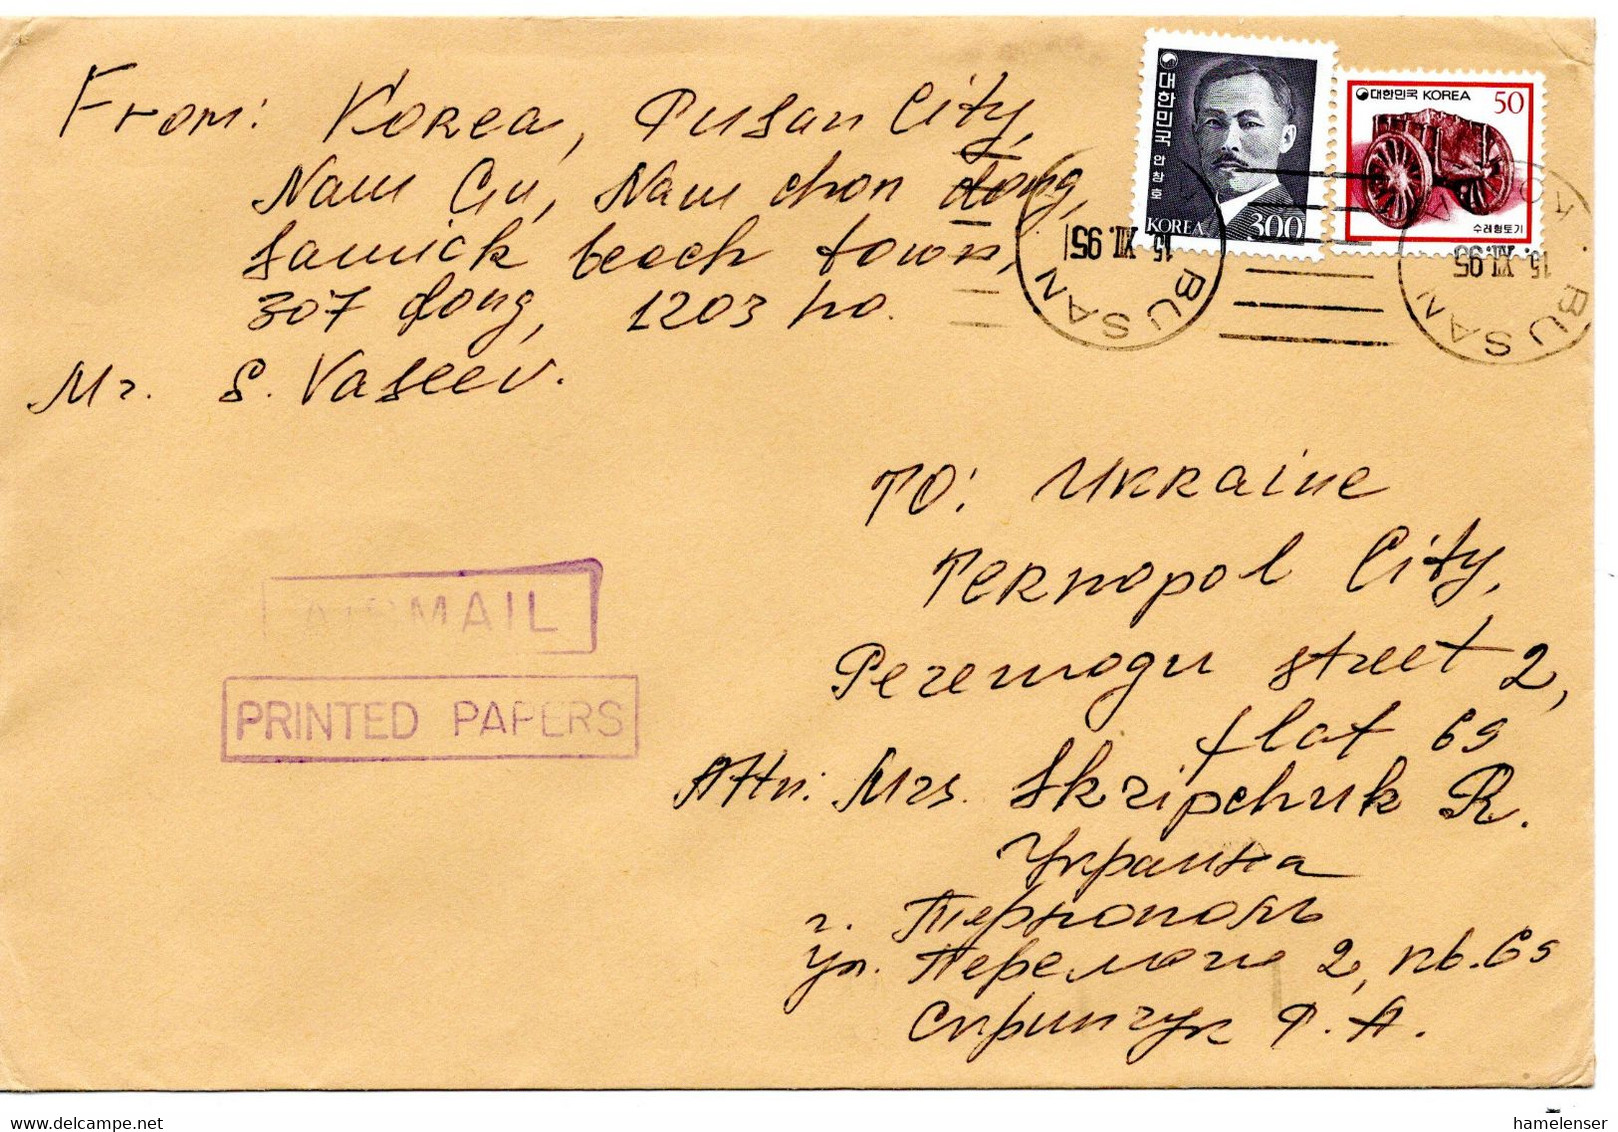 From: Korea, Pusan City,
Nam Gu, Nam chon dong,
Samick beach town,
307 dong, 1203 ho.
Mr. S. Vaseev.
대한민국 안창호
KOREA 300
대한민국 KOREA 50
수레형토기
BUSAN
15.XII.95
BUSAN
15.XII.95
TO: Ukraine
Ternopol City,
Peremogu street 2,
flat 69
Attn: Mrs. Skripchuk R.
AIRMAIL
PRINTED PAPERS
Украина
г. Тернополь
ул. Перемоги 2, кв. 69
Скрипчук Р. А.
hamelenser